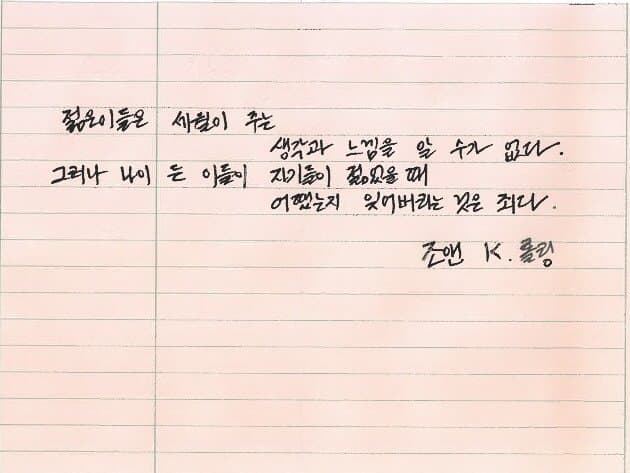 젊은이들은 세월이 주는
생각과 느낌을 알 수가 없다.
그러나 나이 든 이들이 자기들이 젊었을 때
어땠는지 잊어버리는 것은 죄다.
조앤 K. 롤링